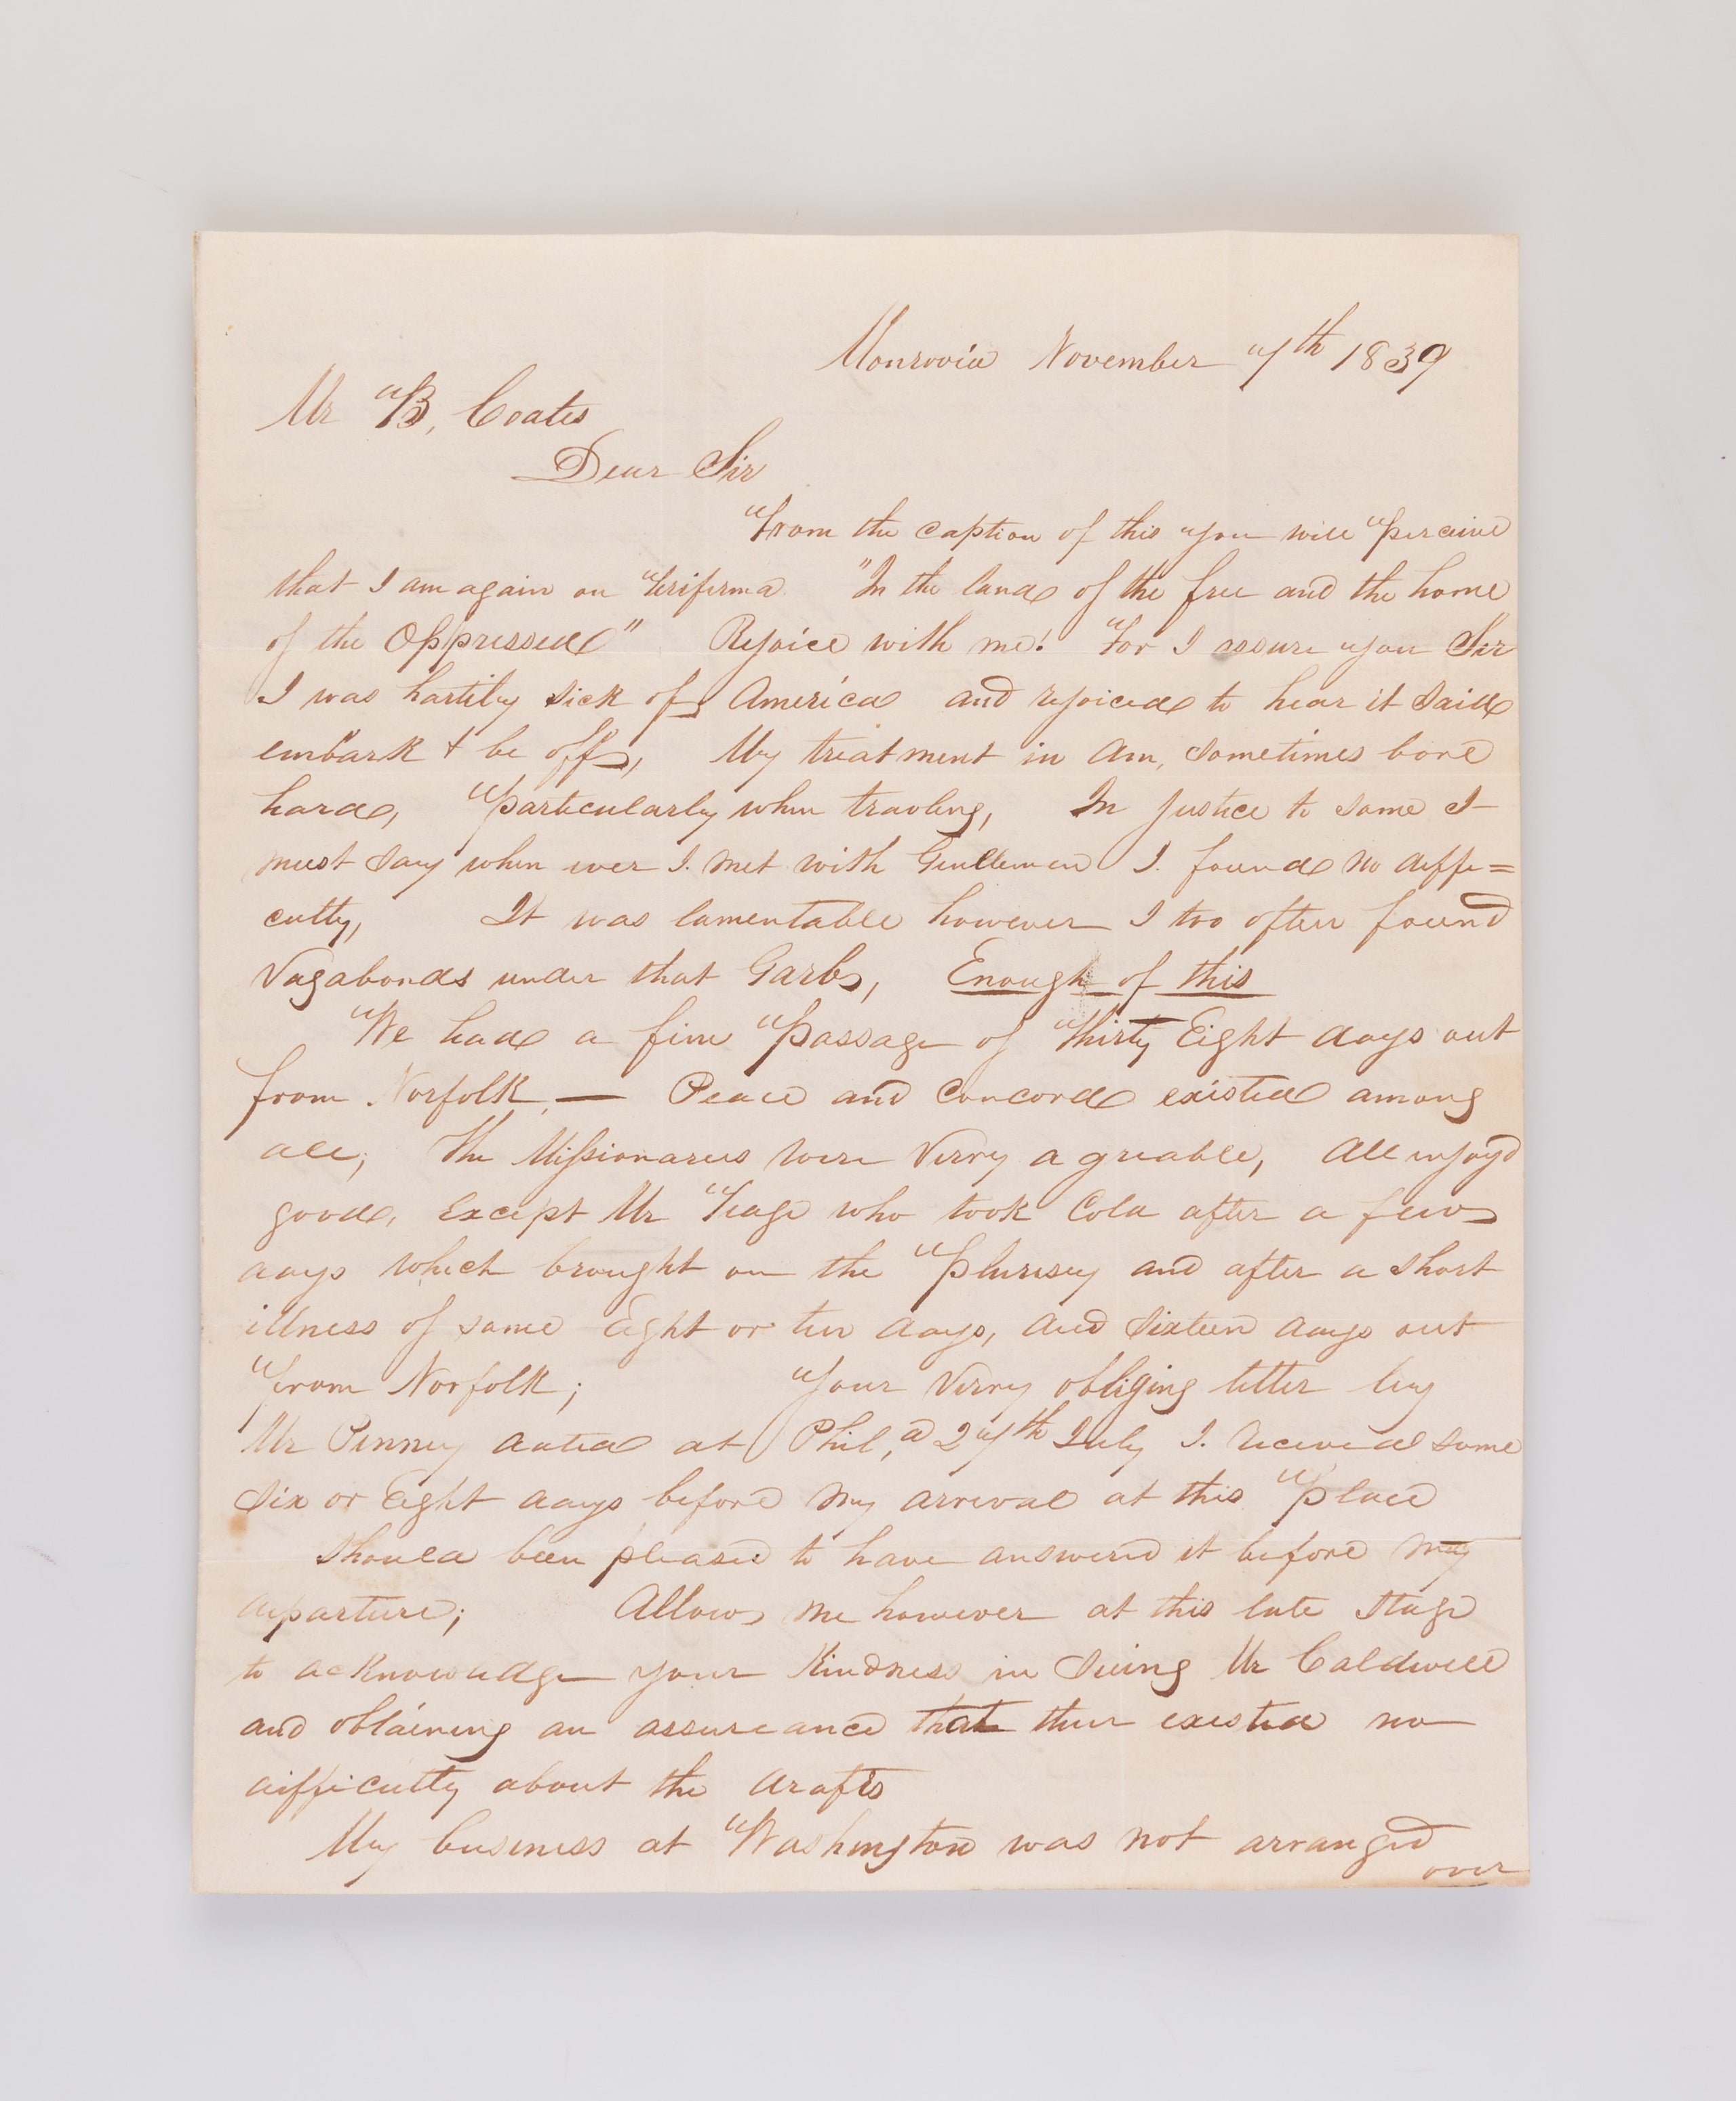 Monrovia November 7th 1839
Mr B, Coates
Dear Sir
From the caption of this you will perceive
that I am again on Teriferma "In the land of the free and the home
of the Oppressed" Rejoice with me! For I assure you Sir
I was hartily sick of America and rejoiced to hear it said
embark & be off, My treatment in Am, sometimes bore
hard, particularly when travling, In justice to some I
must say when ever I. met with Gentlemen I. found no diffi=
culty, It was lamentable however I too often found
Vagabonds under that Garb, Enough of this
We had a fine Passage of Thirty Eight days out
from Norfolk, — Peace and Concord existed among
all; The Missionares were Verry agreable, All enjoyd
good, Except Mr Teage who took Cold after a few
days which brought on the Plurisey and after a short
illness of some Eight or ten days, died Sixteen days out
from Norfolk; Your Verry obliging letter by
Mr Pinney dated at Phil,a 27th July I. received some
Six or Eight days before my arrival at this Place
Should been pleased to have answered it before my
departure; Allow me however at this late Stage
to acknowledge your Kindness in Seing Mr Caldwell
and obtaining an assureance that their existed no
difficulty about the drafts
My business at Washington was not arranged
over